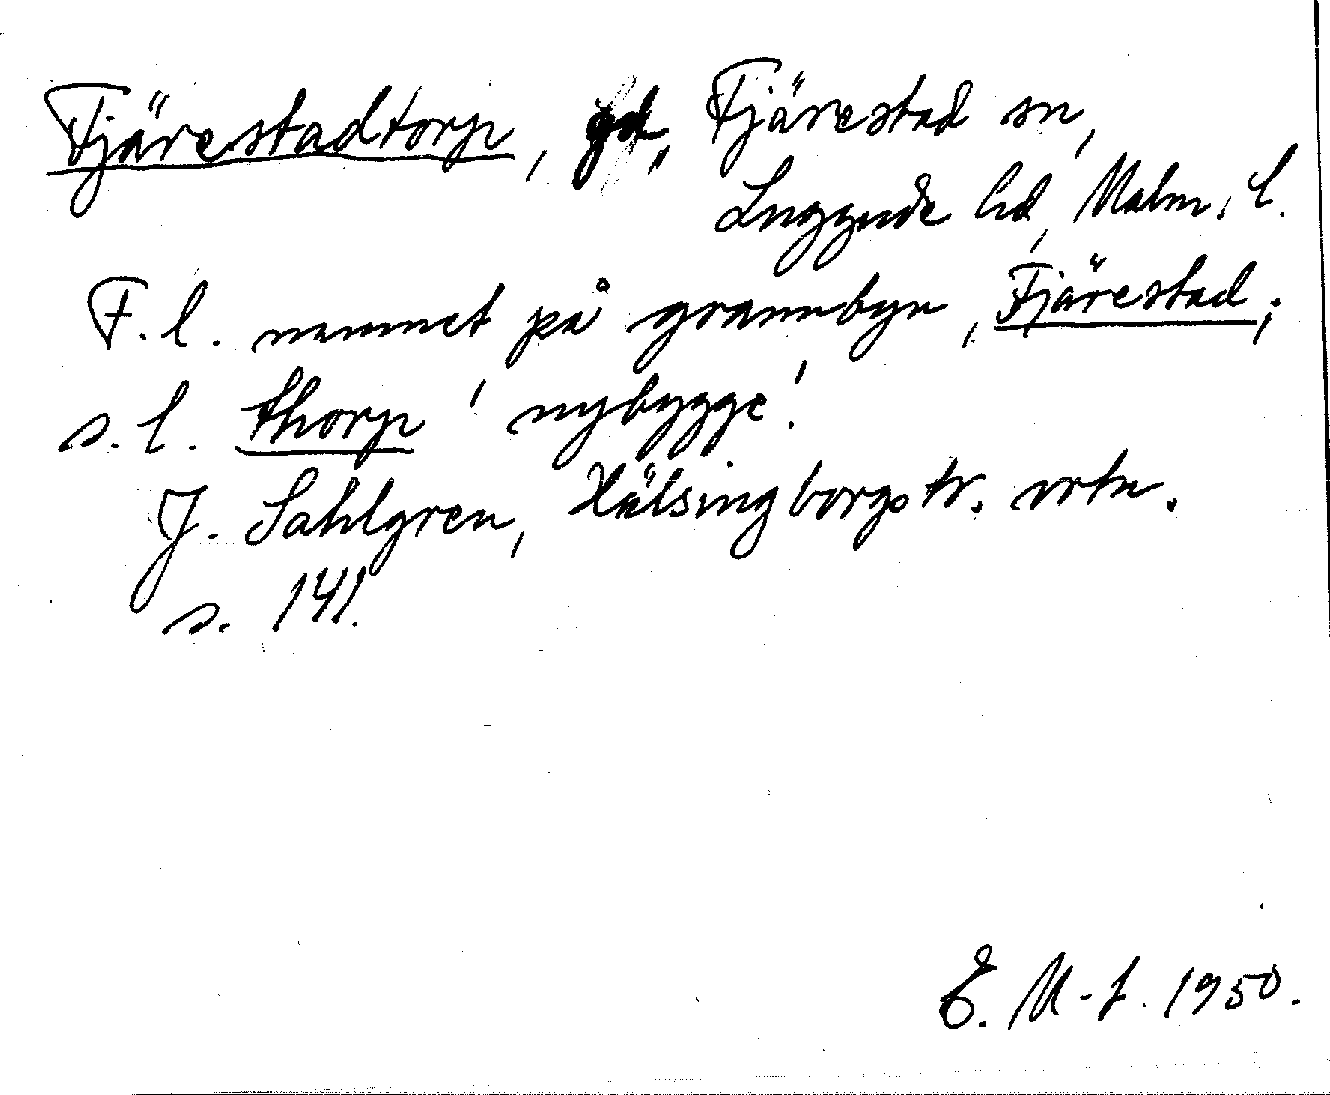 Fjärestadtorp, gd, Fjärestad sn,
Luggude hd, Malm. l.
F. l. namnet på grannbyn, Fjärestad;
s. l. thorp 'nybygge'.
J. Sahlgren, Hälsingborgstr. ortn.
s. 141.
E. M-f. 1950.